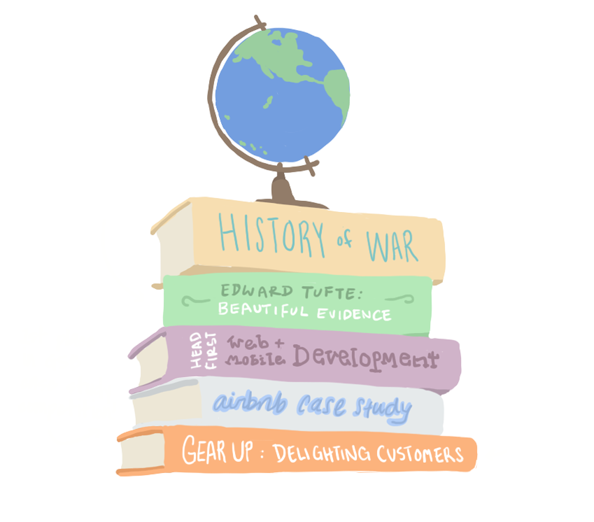 HISTORY of WAR
EDWARD TUFTE:
BEAUTIFUL EVIDENCE
HEAD FIRST
web +
mobile Development
airbnb case study
GEAR UP : DELIGHTING CUSTOMERS